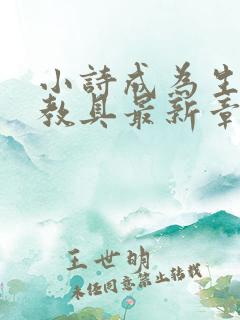 小詩成為生
教具最新章
王世明
未经同意禁止转载